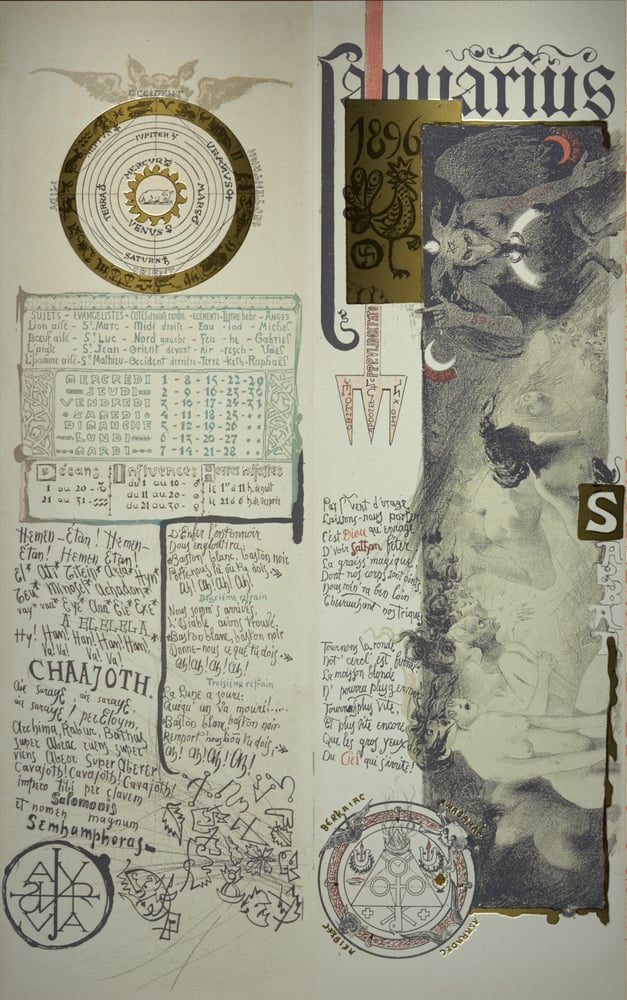 OCCIDENT
MIDI
NEPTUNE
JUPITER
URANUS
MERCURE
TERRA
MARS
VENUS
SATURN
ORIENT
SUJETS - EVANGELISTES - Côtés et points cardin. - ELEMENTS - Lettre hébr. - ANGES
Lion ailé - St. Marc - Midi droite - Eau - iod - Michel
Bœuf ailé - St. Luc - Nord gauche - Feu - he - Gabriel
L'aigle - St. Jean - Orient devant - Air - resch - Uriel
L'homme ailé - St. Mathieu - Occident derrière - Terre - keth - Raphaël
MERCREDI 1 - 8 - 15 - 22 - 29
JEUDI 2 - 9 - 16 - 23 - 30
VENDREDI 3 - 10 - 17 - 24 - 31
SAMEDI 4 - 11 - 18 - 25
DIMANCHE 5 - 12 - 19 - 26
LUNDI 6 - 13 - 20 - 27
MARDI 7 - 14 - 21 - 28
Décans
1 au 20 -
21 au 31 -
Influences
du 1 au 10 -
du 11 au 20 -
du 21 au 31 -
Heures néfastes
le 1er à 11 h. de nuit
le 21 à 6 h. de
Hemen-Etan! Hemen-
Etan! Hemen Etan!
El* Ati* Titeip* Azia* Hyn*
Teu* Minosel* Achadon*
vay* vaa* Eye* Aaa* Eie* Exe*
A EL EL EL A
Hy! Hau! Hau! Hau! Hau!
Va! Va! Va! Va!
CHAAJOTH.
Aie saraye, aie saraye,
aie saraye! per Eloym,
Archima, Rabur, Bathas
super Abrac ruens super-
viens Abeor Super Aberer
Chavajoth! Cavajoth! Cavajoth!
impero tibi per clavem
Salomonis
et nomen magnum
Semhamphoras
D'Enfer l'entonnoir
Nous engloutira;
Baston blanc, baston noir
Porte-nous là où tu dois
Ah! Ah! Ah! Ah!
Deuxième refrain
Nous somm's arrivés,
L'Diable avons trouvé;
Baston blanc, baston noir
Donne-nous ce que tu dois
Ah! Ah! Ah! Ah!
Troisième refrain
La Lune a
Quequ'un va mouri!....
Baston blanc, baston noir
Remport'nous où tu dois
Ah! Ah! Ah! Ah!
Aquarius
1896
S
Par l'vent d'orage
Laissons-nous porter
C'est Dieu qu'enrage
D'voir Sathan fêter
La graiss' magique
Dont nos corps sont oints
Nous mèn'ra bien loin
Chevauchant nos triques
Tournons la rond'
Not' cercl' est fermé
La moisson blonde
N' pourra plus germer
Tournons plus vite,
Et plus vite encore
Que les gros yeux
Du Ciel qui s'irrite!
BERKAIAC
AMASARAC
AKIBEEC
ASARADEC